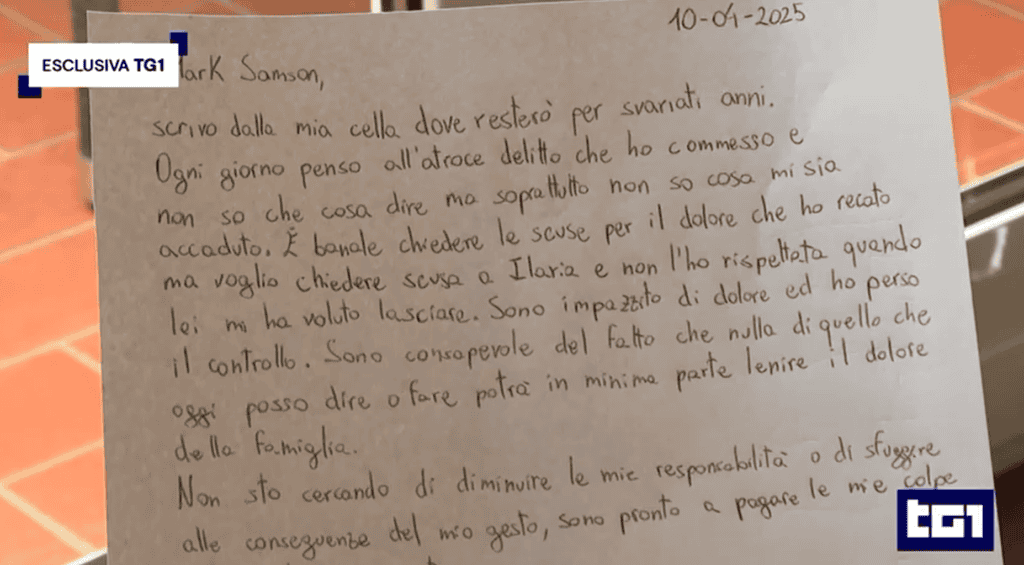 10-04-2025
ESCLUSIVA TG1
Mark Samson,
scrivo dalla mia cella dove resterò per svariati anni.
Ogni giorno penso all'atroce delitto che ho commesso e
non so che cosa dire ma soprattutto non so cosa mi sia
accaduto. È banale chiedere le scuse per il dolore che ho recato
ma voglio chiedere scusa a Ilaria e non l'ho rispettata quando
lei mi ha voluto lasciare. Sono impazzito di dolore ed ho perso
il controllo. Sono consapevole del fatto che nulla di quello che
oggi posso dire o fare potrà in minima parte lenire il dolore
della famiglia.
Non sto cercando di diminuire le mie responsabilità o di sfuggire
alle conseguenze del mio gesto, sono pronto a pagare le mie colpe
TG1